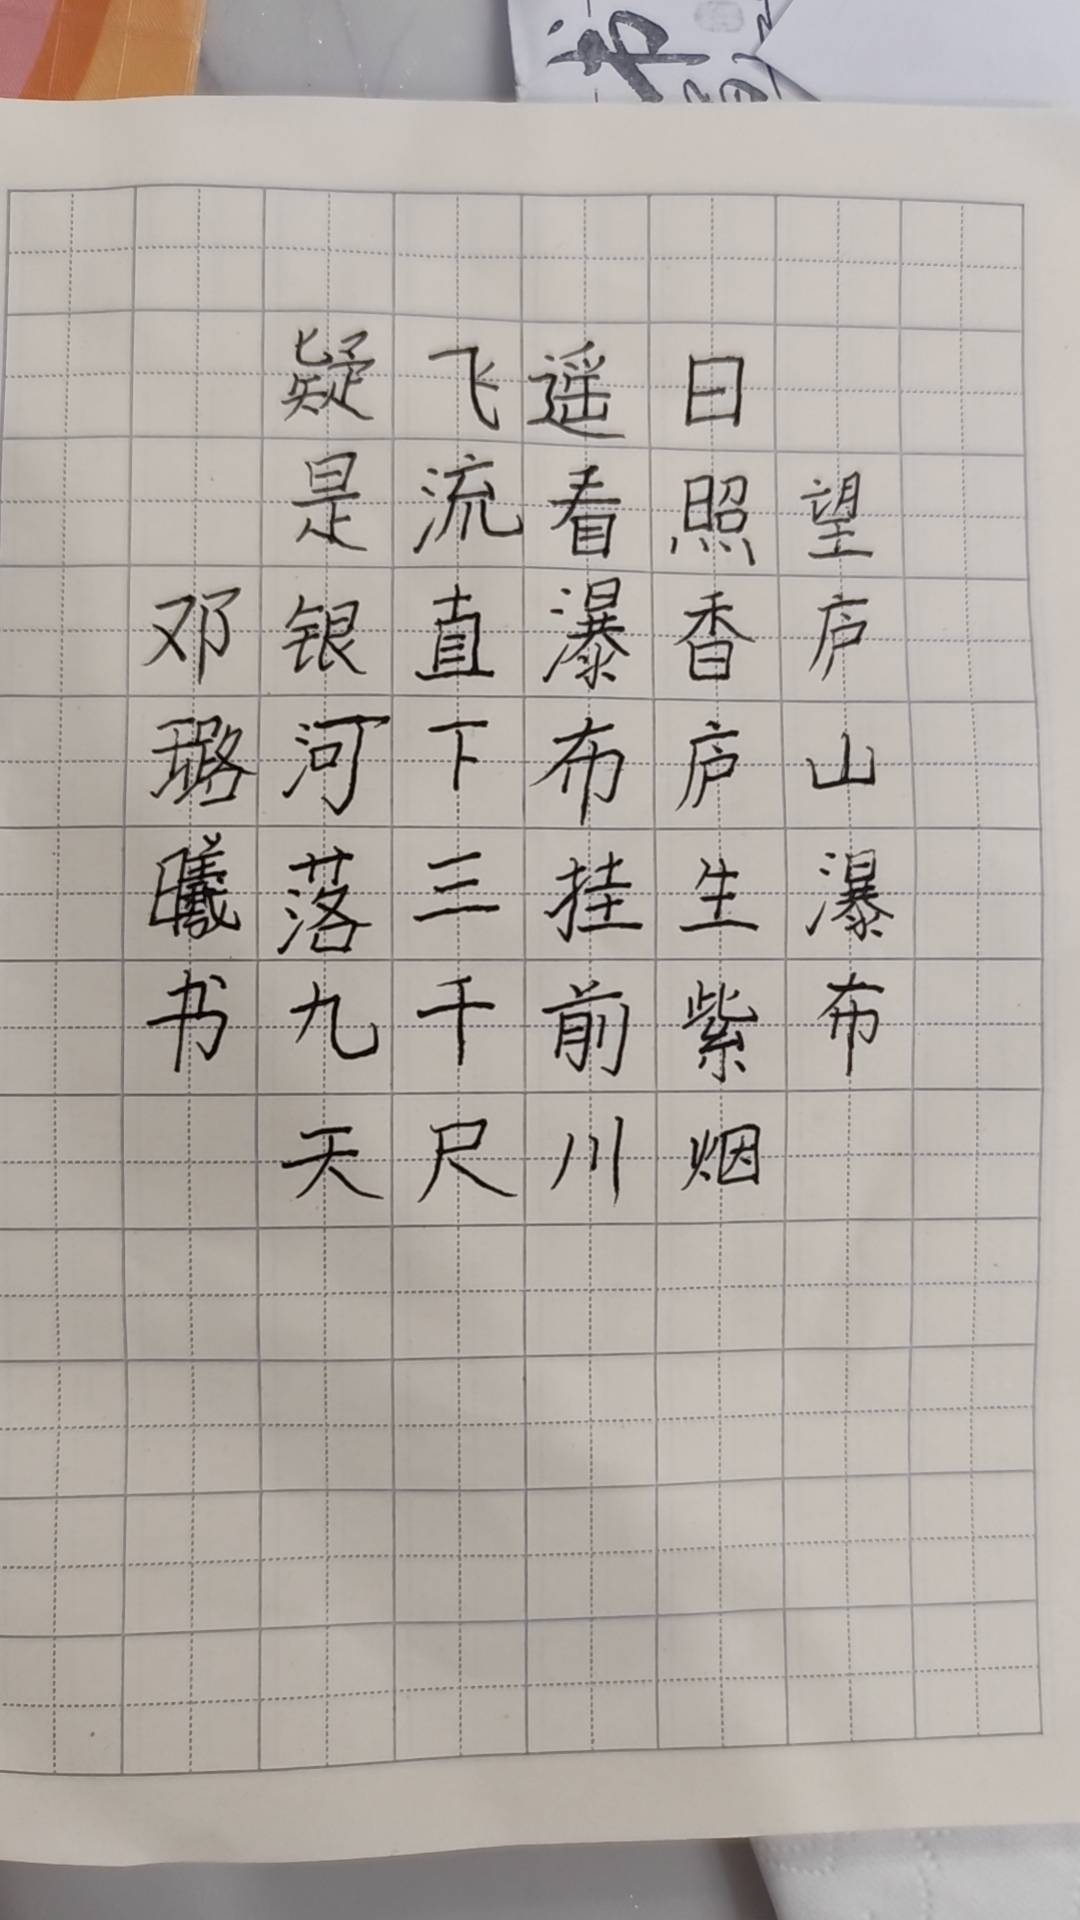 望庐山瀑布
日照香庐生紫烟
遥看瀑布挂前川
飞流直下三千尺
疑是银河落九天
邓璐曦书